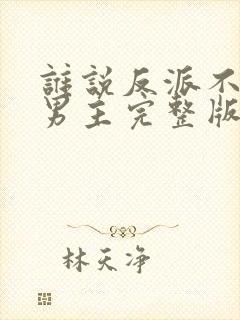 誰說反派不
男主完整版
林天净